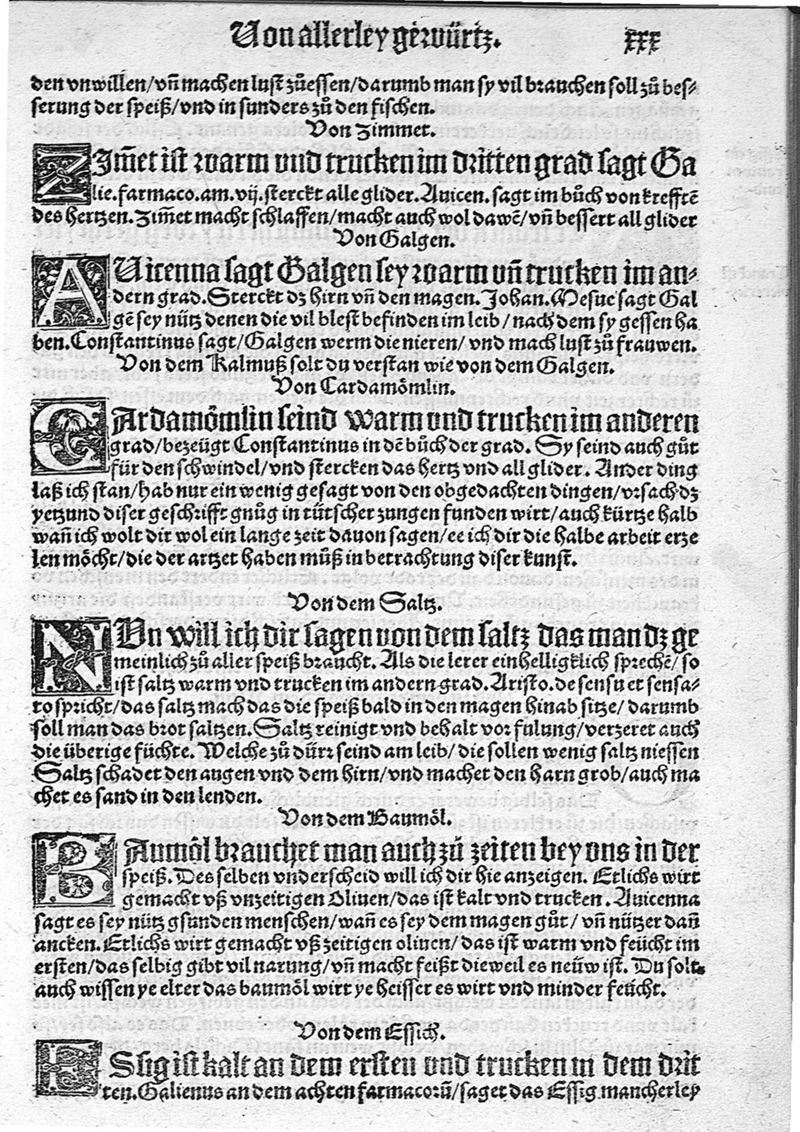 Von allerley gewürtz. xxx
den vnwillen/vn̄ machen lust zůessen/darumb man sy vil brauchen soll zů bes⸗
serung der speiß/vnd in sunders zů den fischen.
Von Zimmet.
ZIm̄et ist warm vnd trucken im dritten grad sagt Ga
lie.farmaco.am.vij.sterckt alle glider.Auicen.sagt im bůch von krefftē
des hertzen.Zim̄et macht schlaffen/macht auch wol dawē/vn̄ bessert all glider
Von Galgen.
AUicenna sagt Galgen sey warm vn̄ trucken im an⸗
dern grad.Sterckt dz hirn vn̄ den magen.Johan.Mesue sagt Gal
gē sey nütz denen die vil blest befinden im leib/nach dem sy gessen ha
ben.Constantinus sagt/Galgen werm die nieren/vnd mach lust zů frauwen.
Von dem Kalmuß solt du verstan wie von dem Galgen.
Von Cardamömlin.
CArdamömlin seind warm vnd trucken im anderen
grad/bezeügt Constantinus in dē bůch der grad. Sy seind auch gůt
für den schwindel/vnd stercken das hertz vnd all glider. Ander ding
laß ich stan/hab nur ein wenig gesagt von den obgedachten dingen/vrsach dz
yetzund diser geschrifft gnůg in tütscher zungen funden wirt/auch kürtze halb
wan̄ ich wolt dir wol ein lange zeit dauon sagen/ee ich dir die halbe arbeit erze
len möcht/die der artzet haben můß in betrachtung diser kunst.
Von dem Saltz.
NUn will ich dir sagen von dem saltz das man dz ge
meinlich zů aller speiß braucht. Als die lerer einhelligklich sprechē/so
ist saltz warm vnd trucken im andern grad.Aristo.de sensu et sensa⸗
to spricht/das saltz mach das die speiß bald in den magen hinab sitze/darumb
soll man das brot saltzen.Saltz reinigt vnd behalt vor fulung/verzeret auch
die überige füchte. Welche zů dürr seind am leib/die sollen wenig saltz niessen
Saltz schadet den augen vnd dem hirn/vnd machet den harn grob/auch ma
chet es sand in den lenden.
Von dem Baumöl.
BAumöl brauchet man auch zů zeiten bey vns in der
speiß. Des selben vnderscheid will ich dir hie anzeigen. Etlichs wirt
gemacht vß vnzeitigen Oliuen/das ist kalt vnd trucken. Auicenna
sagt es sey nütz gsunden menschen/wan̄ es sey dem magen gůt/vn̄ nützer dan̄
ancken.Etlichs wirt gemacht vß zeitigen oliuen/das ist warm vnd feücht im
ersten/das selbig gibt vil narung/vn̄ macht feißt dieweil es neüw ist. Du solt
auch wissen ye elter das baumöl wirt ye heisser es wirt vnd minder feücht.
Von dem Essich.
ESsig ist kalt an dem ersten vnd trucken in dem drit
ten.Galienus an dem achten farmacorū/saget das Essig mancherley